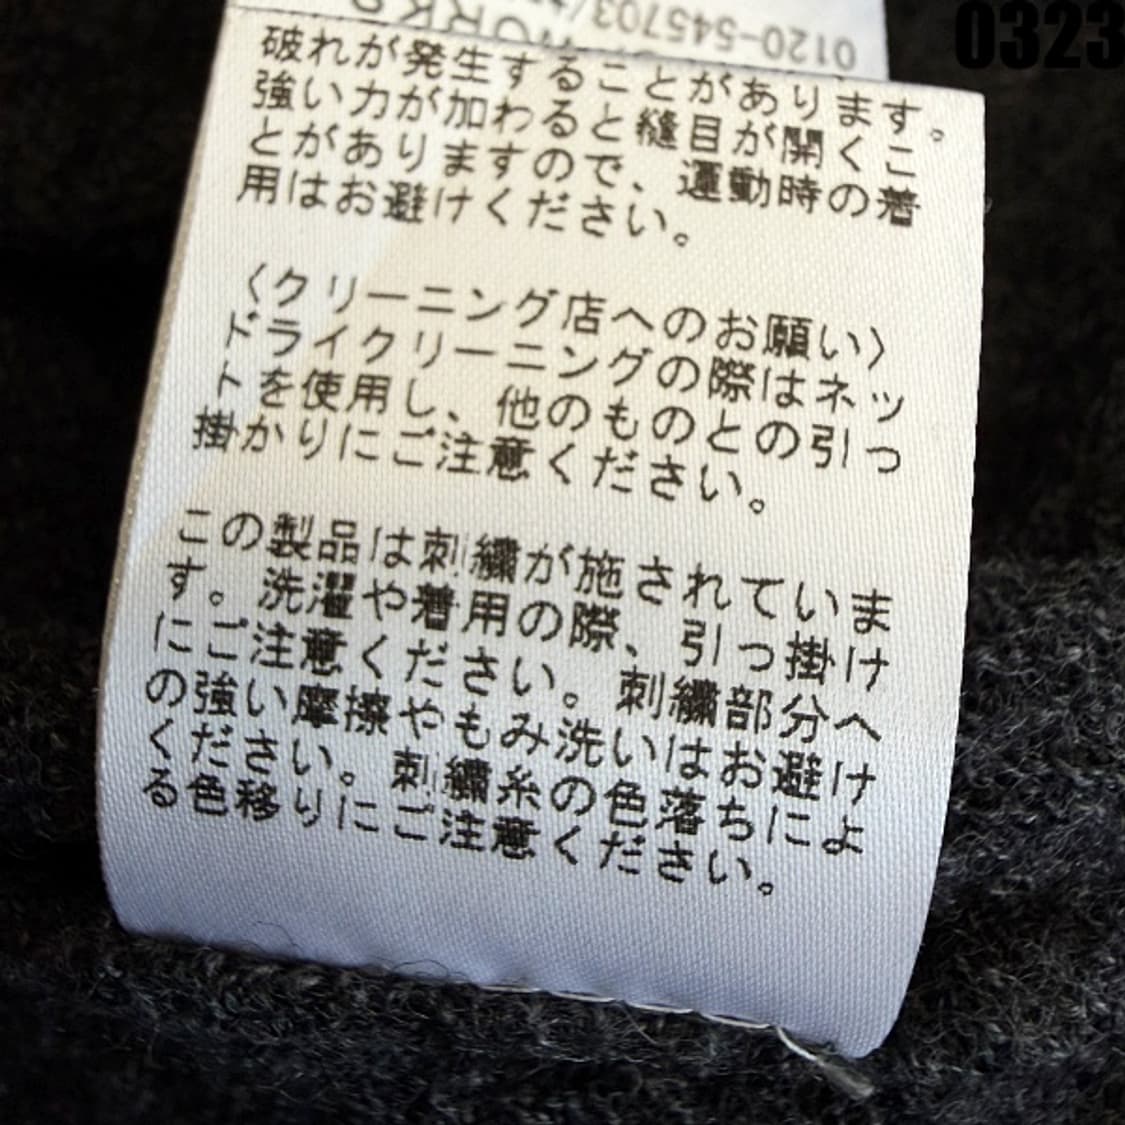 0323
0120-545703
破れが発生することがあります。
強い力が加わると縫目が開くこ
とがありますので、運動時の着
用はお避けください。
〈クリーニング店へのお願い〉
ドライクリーニングの際はネッ
トを使用し、他のものとの引っ
掛かりにご注意ください。
この製品は刺繍が施されていま
す。洗濯や着用の際、引っ掛け
にご注意ください。刺繍部分へ
の強い摩擦やもみ洗いはお避け
ください。刺繍糸の色落ちによ
る色移りにご注意ください。